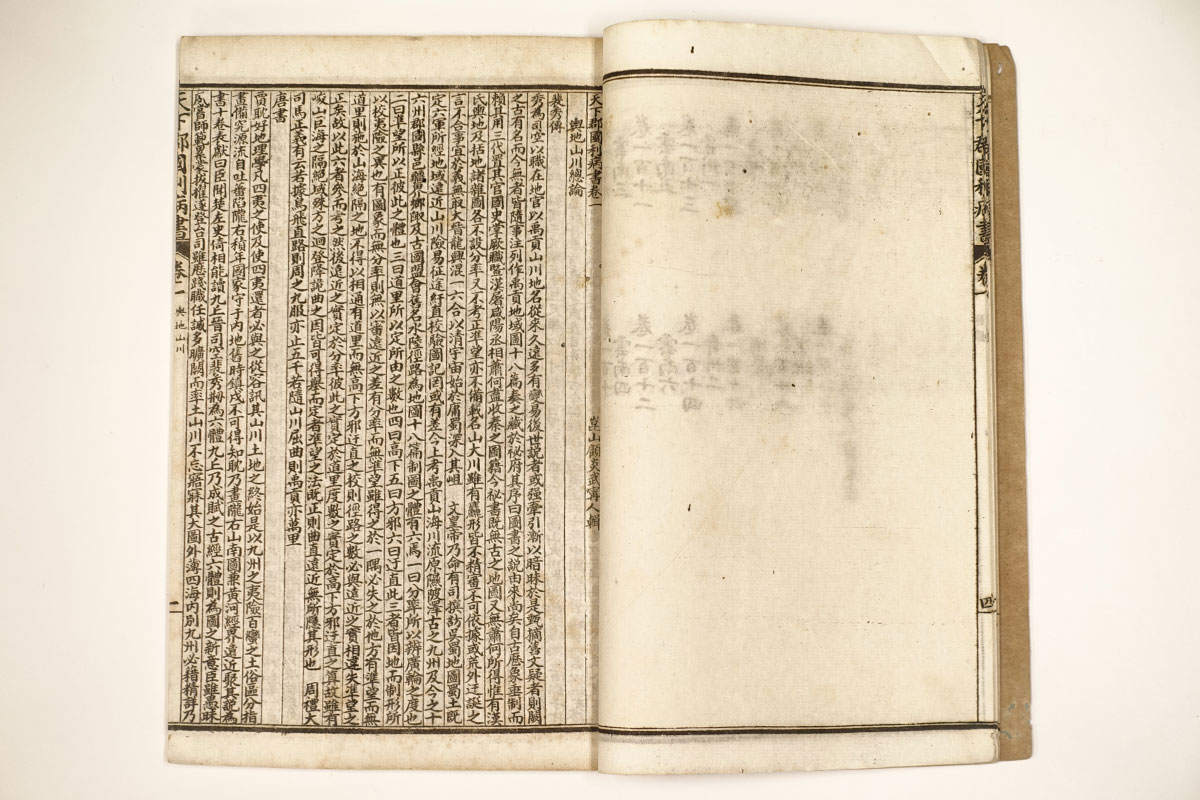 天下郡國利病書 卷一
四
天下郡國利病書卷一 崑山顧炎武寧人輯
輿地山川總論
裴秀傳
秀為司空以職在地官以禹貢山川地名從來久遠多有變易後世說者或强牽引漸以暗昧於是甄擿舊文疑者則闕
之古有名而今無者皆隨事注列作禹貢地域圖十八篇奏之藏於秘府其序曰圖書之說由來尚矣自古歷象垂制而
賴其用三代置其官國史掌厥職暨漢屠咸陽丞相蕭何盡收秦之圖籍今秘書既無古之地圖又無蕭何所得惟有漢
氏輿地及括地諸雜圖各不設分率又不考正準望亦不備載名山大川雖有麤形皆不精審不可依據或荒外迂誕之
言不合事宜於義無取大晉龍興混一六合以清宇宙始於庸蜀深入其岨 文皇帝乃命有司撰訪吳蜀地圖蜀土既
定六軍所經地域遠近山川險易征途紆直校驗圖記罔或有差今上考禹貢山海川流原隰陂澤古之九州及今之十
六州郡國縣邑疆界鄉陬及古國盟會舊名水陸徑路為地圖十八篇制圖之體有六焉一曰分率所以辨廣輪之度也
二曰準望所以正彼此之體也三曰道里所以定所由之數也四曰高下五曰方邪六曰迂直此三者皆因地而制形所
以校夷險之異也有圖象而無分率則無以審遠近之差有分率而無準望雖得之於一隅必失之於他方有準望而無
道里則施於山海絕隔之地不得以相通有道里而無高下方邪迂直之校則徑路之數必與遠近之實相違失準望之
正矣故以此六者參而考之然後遠近之實定於分率彼此之實定於道里度數之實定於高下方邪迂直之算故雖有
峻山巨海之隔絕域殊方之迥登降詭曲之因皆可得舉而定者準望之法既正則曲直遠近無所隱其形也 周禮大
司馬正義有云若據鳥飛直路則周之九服亦止五千若隨山川屈曲則禹貢亦萬里
唐書
賈耽好地理學凡四夷之使及使四夷還者必與之從容訊其山川土地之終始是以九州之夷險百蠻之土俗區分指
畫備究源流自吐番陷隴右積年國家守于內地舊時鎮戍不可得知耽乃畫隴右山南圖兼黃河經界遠近聚其說為
書十卷表獻曰臣聞楚左史倚相能讀九丘晉司空裴秀刱為六體九丘乃成賦之古經六體則為圖之新意臣雖愚昧
夙嘗師範累蒙拔擢遂登台司雖歷踐職任誠多曠闕而率土山川不忘寤寐其大圖外薄四海內別九州必藉精詳乃
天下郡國利病書 卷一 輿地山川 二